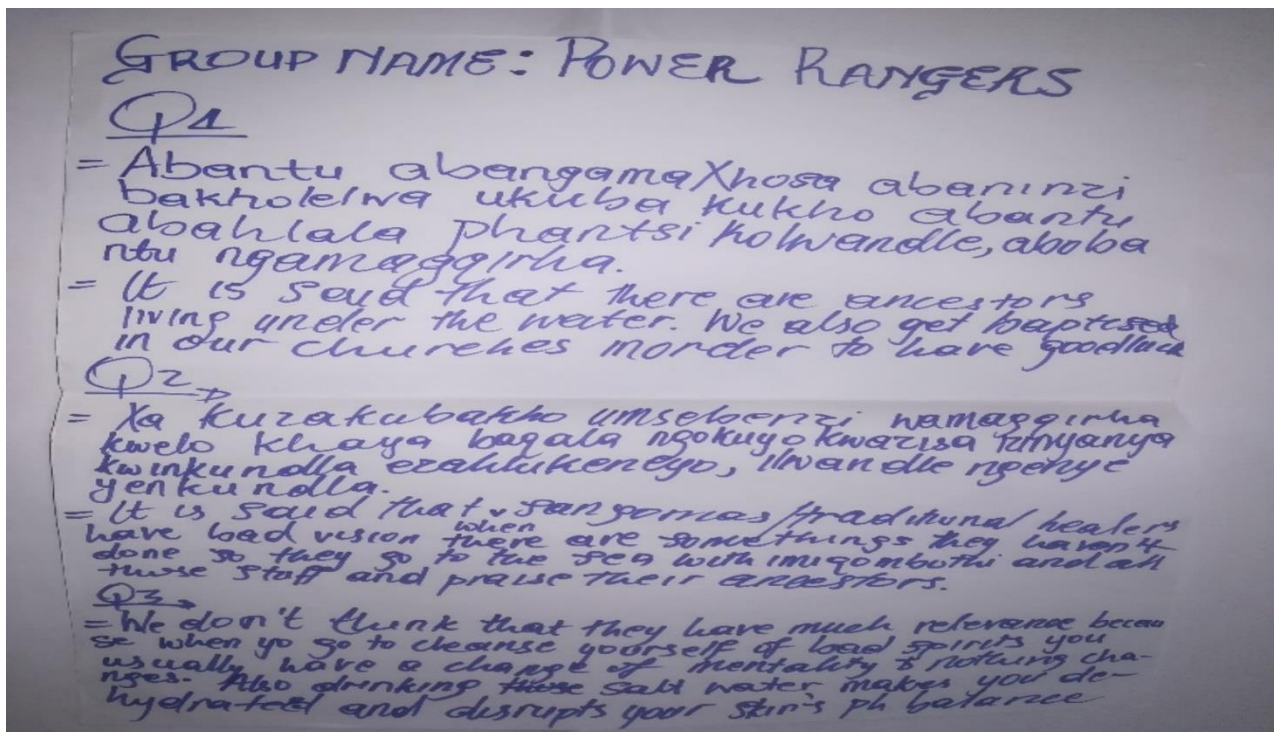 GROUP NAME: POWER RANGERS
Q1
= Abantu abangamaXhosa abaninzi
bakholelwa ukuba kukho abantu
abahlala phantsi kolwandle, aboba
ntu ngamaggirha.
= It is said that there are ancestors
living under the water. We also get baptised
in our churches inorder to have goodluck
Q2
= Xa kuzakubakho umsebenzi wamaggirha
kwelo khaya baqala ngokuyokwazisa izinyanya
kwinkundla ezahlukeneyo, ulwandle ngenye
yenkundla.
= It is said that sangomas/traditional healers
have bad vision when there are somethings they haven't
done so they go to the sea with imiqombothi and all
those staff and praise their ancestors.
Q3
= We don't think that they have much relevance becau
se when yo go to cleanse yourself of bad spirits you
usually have a change of mentality & nothing cha-
nges. Also drinking those salt water makes you de-
hydrated and disrupts your skin's ph balance